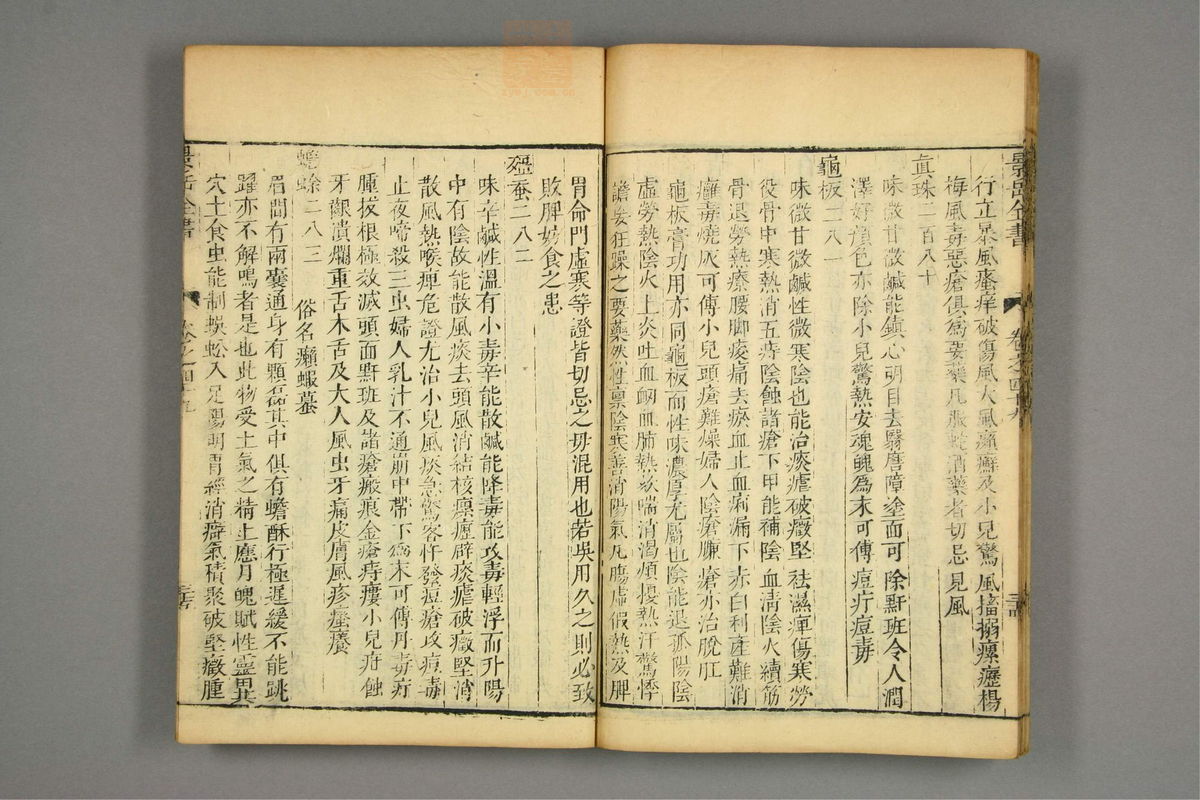 景岳全書 卷之四十九
行立暴風瘙痒破傷風大風癩癬及小兒驚風搐搦瘰癧楊
梅風毒惡瘡俱爲要藥凡服蛇酒藥者切忌見風
眞珠二百八十
味微甘微鹹能鎮心明目去翳磨障塗面可除䵟斑令人潤
澤好顔色亦除小兒驚熱安魂魄爲末可傅痘疔痘毒
龜板二八一
味微甘微鹹性微寒陰也能治痰瘧破癥堅祛濕痺傷寒勞
役骨中寒熱消五痔陰蝕諸瘡下甲能補陰血淸陰火續筋
骨退勞熱療腰脚痠痛去瘀血止血痢漏下赤白利產難消
癰毒燒灰可傅小兒頭瘡難燥婦人陰瘡臁瘡亦治脫肛
龜板膏功用亦同龜板而性味濃厚尤屬也陰能退孤陽陰
虛勞熱陰火上炎吐血衂血肺熱欬喘消渴煩擾熱汗驚悸
譫妄狂躁之要藥然性禀陰寒善消陽氣凡陽虛假熱及脾
胃命門虛寒等證皆切忌之毋混用也若吳用久之則必致
敗脾妨食之患
殭蚕二八二
味辛鹹性溫有小毒辛能散鹹能降毒能攻毒輕浮而升陽
中有陰故能散風痰去頭風消結核瘰癧辟痰瘧破癥堅消
散風熱喉痺危證尤治小兒風痰急驚客忤發痘瘡攻痘毒
止夜啼殺三虫婦人乳汁不通崩中帶下爲末可傅丹毒疔
腫拔根極效滅頭面䵟斑及諸瘡瘢痕金瘡痔瘻小兒疳蝕
牙齦潰爛重舌木舌及大人風虫牙痛皮膚風疹瘙癢
蟾蜍二八三 俗名癩蝦蟇
眉間有兩囊通身有顆磊其中俱有蟾酥行極遲緩不能跳
躍亦不解鳴者是也此物受土氣之精上應月魄賦性靈異
穴土食虫能制蜈蚣入足陽明胃經消癖氣積聚破堅癥腫
景岳全書 卷之四十九